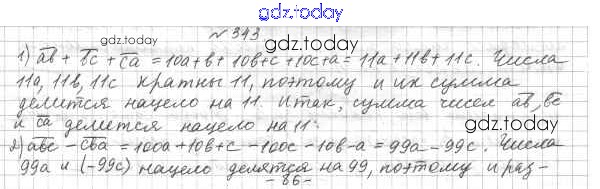 gdz.today
№ 343
gdz.today
1) ab + bc + ca = 10a + b + 10b + c + 10c + a = 11a + 11b + 11c. Числа
11a, 11b, 11c кратны 11, поэтому и их сумма
делится нацело на 11. Итак, сумма чисел ab, bc
и ca делится нацело на 11.
gdz.today
gdz.today
2) abc - cba = 100a + 10b + c - 100c - 10b - a = 99a - 99c. Числа
99a и (-99c) нацело делятся на 99, поэтому и раз-
- 86 -
gdz.today